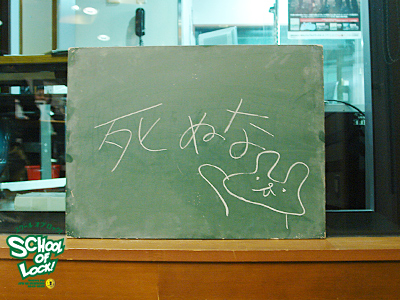 死ぬな
SCHOOL
OF
LOCK!